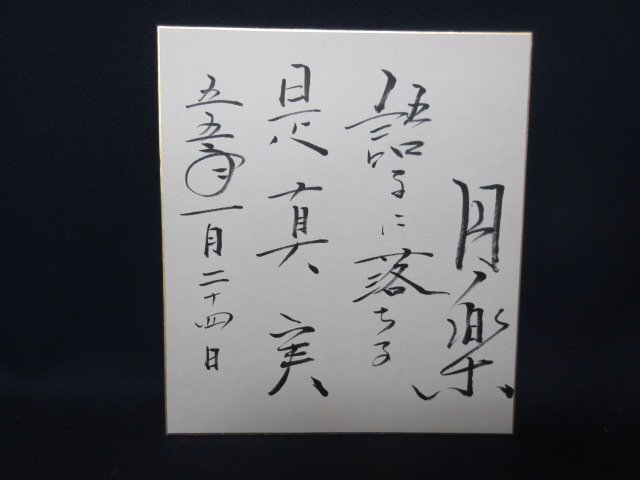 月樂
語るに落ちる
是真実
五五年一月二十四日